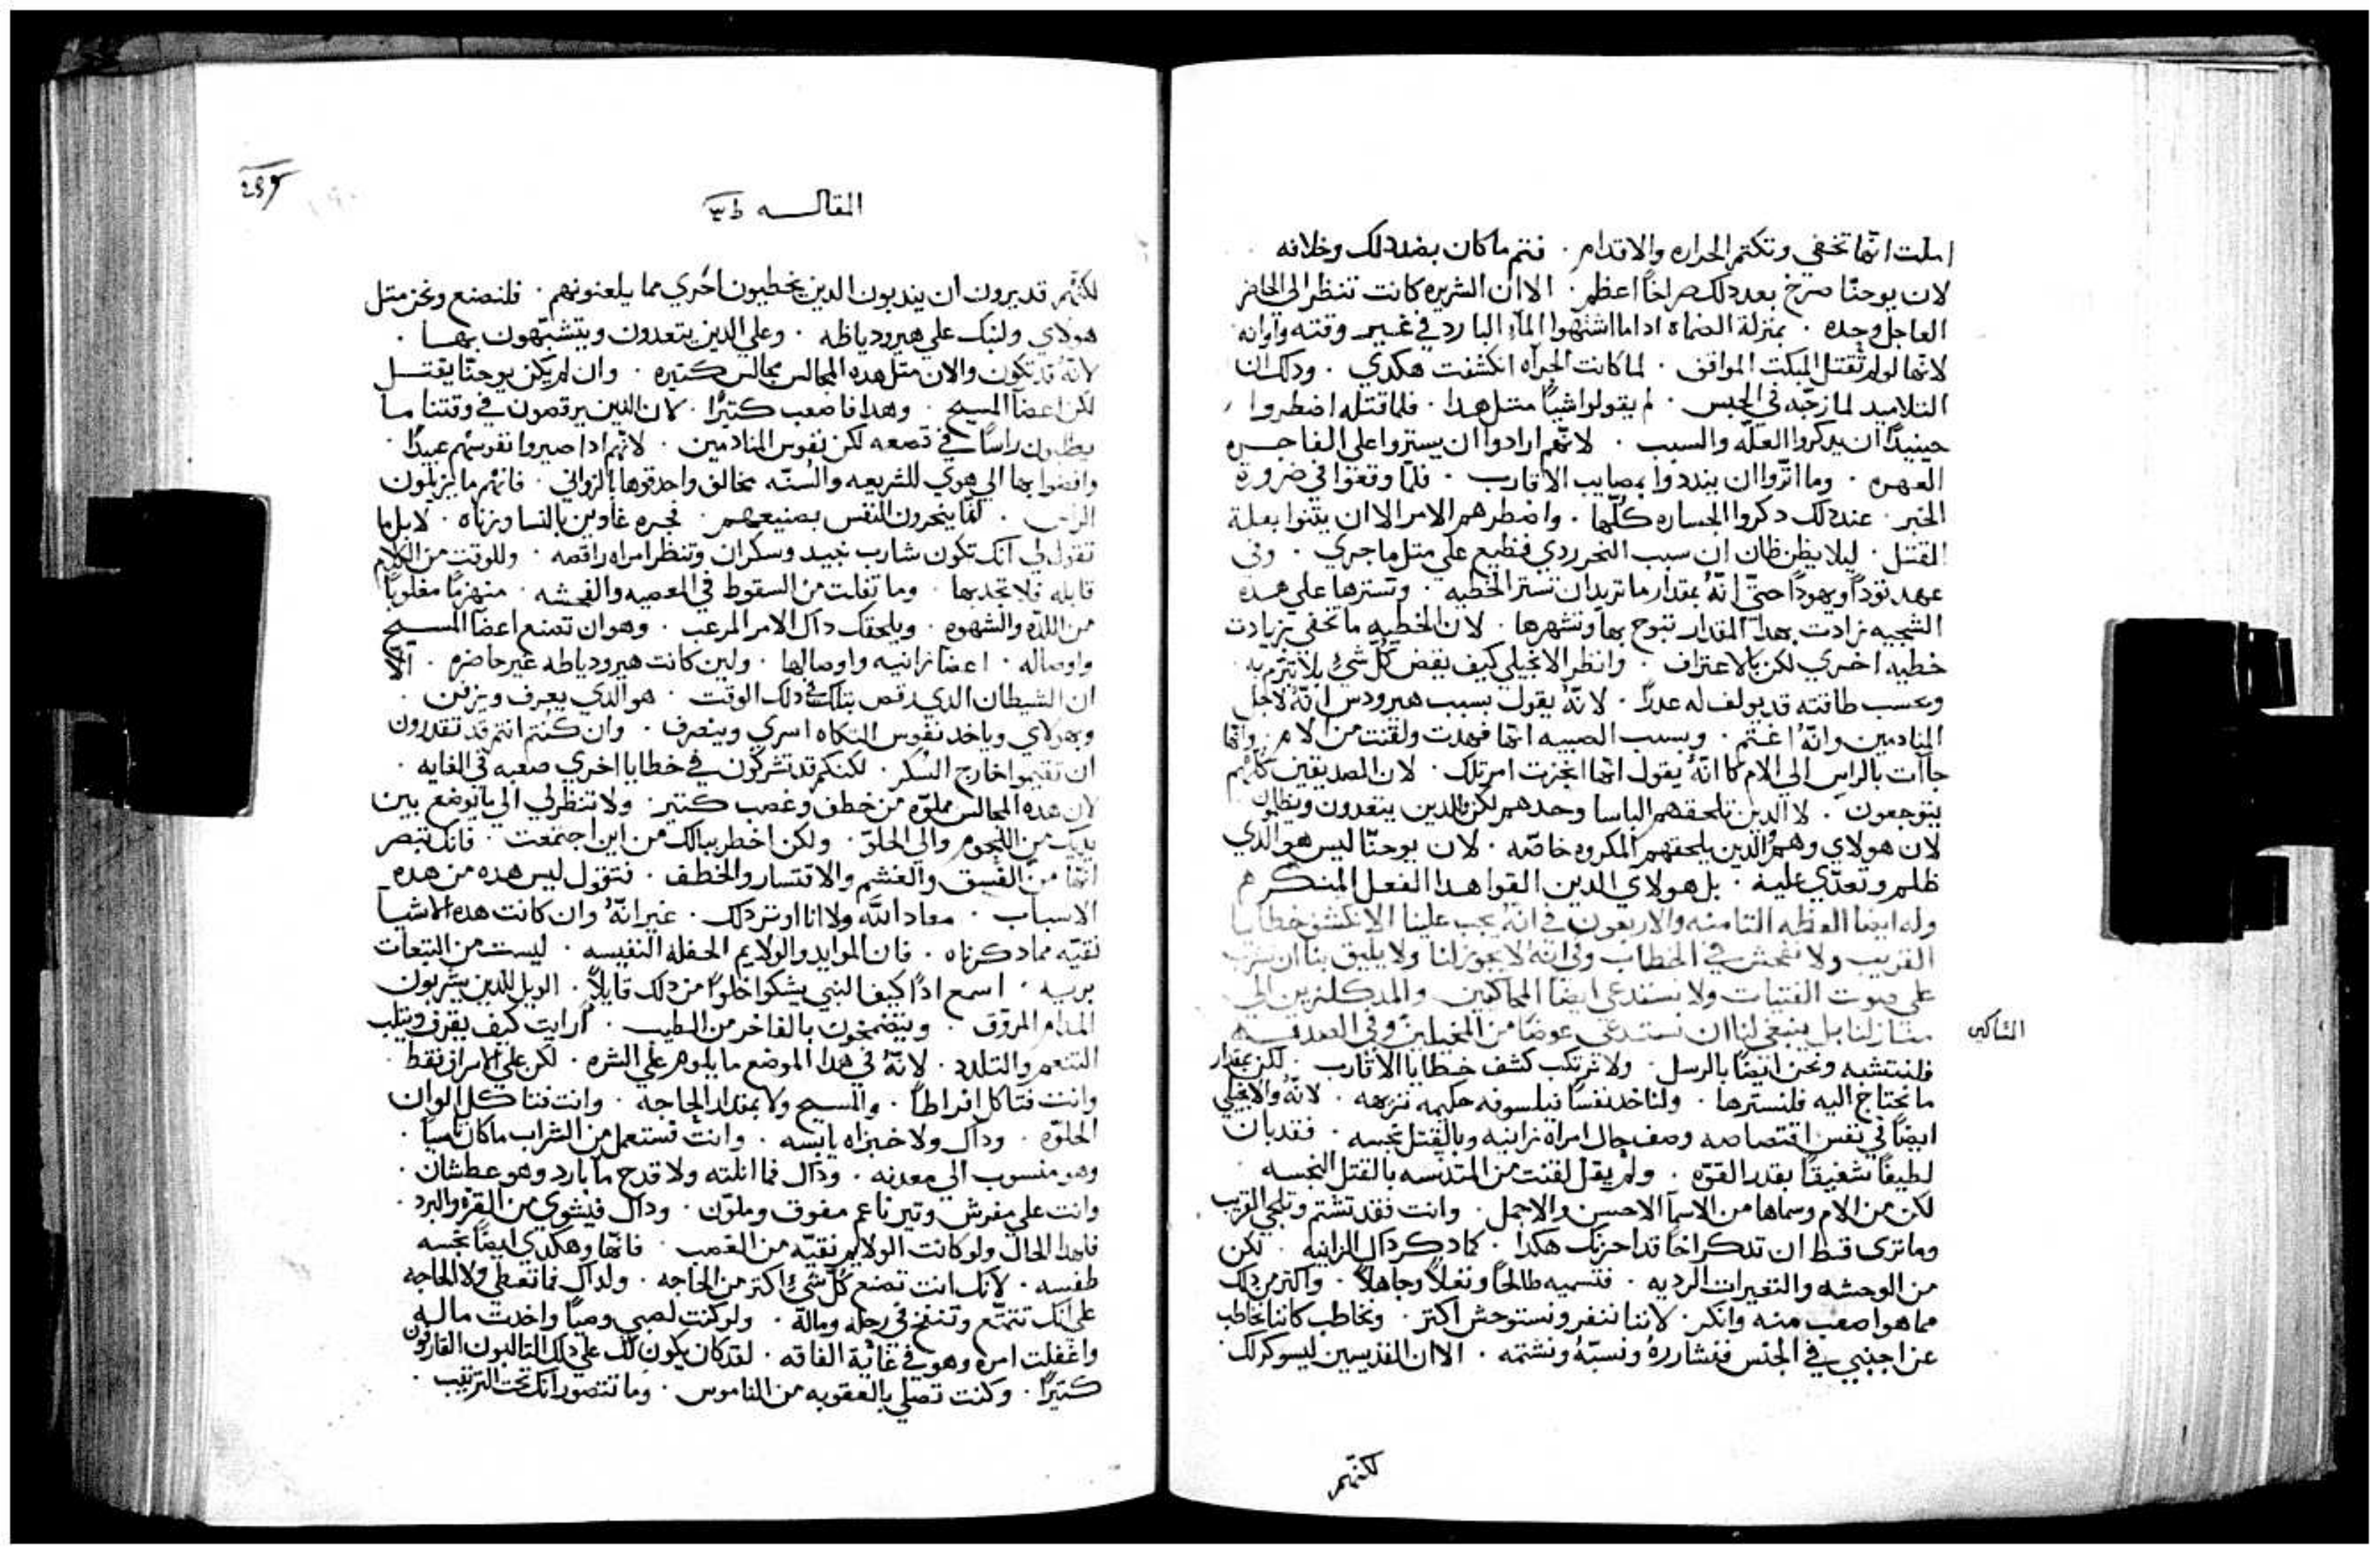 املت انها تخفي وتكتم الجراره والاقدام . فتم ما كان بضد دلك وخلافه
لان يوحنّا صرخ بعد دلك صراخًا اعظم . الا ان الشريره كانت تنظر الي الحاضر
العاجل وحده . بمنزلة الضماه ادا ما اشتهوا المآء البارد في غير وقته واوانه
لانها لو لم تقتل المبكت الموافق . لما كانت الجرآه انكشفت هكدي . ودلك ان
التلاميد لما زجّه في الحبس . لم يقولوا شيًا متل هدا . فلما قتله اضطروا
حينيدًا ان يدكروا العلّه والسبب . لانهم ارادوا ان يستروا علي الفاجره
العهره . وما اتروا ان ينددوا بمصايب الاقارب . فلمّا وقعوا في ضرورة
الخبر . عند دلك دكروا الجساره كلّها . واضطرهم الامر الا ان يتنوا بعلة
القتل . ليلا يظن ظان ان سبب النحر ردي فظيع علي متل ما جري . وفي
عهد تودا ويهودا حتّي انّهُ بمقدار ما تريد ان تستر الخطيه . وتسترها علي هده
الشجيه زادت بهدا المقدار تبوح بها وتشهرها . لان الخطيه ما تخفي بزيادت
خطيه اخري لكن بالاعتراف . وانظر الانجيلي كيف يقص كل شيء بلا تبرم به
وبحسب طاقته قد يولف له عدرًا . لانهُ يقول بسبب هيرودس انّهُ لاجل
المنادمين وانّهُ اغتم . وبسبب الصبيه انها فهدت ولقنت من الام . وانها
جاآت بالراس الي الام كما انّهُ يقول انها انجزت امر تلك . لان الصديقين كلهم
يتوجعون . لا الدين تلحقهم الباسا وحدهم لكن بالدين يتعدون ويظلمون
لان هولاي وهم الدين يلحقهم المكروه خاصّه . لان يوحنّا ليس هو الدي
ظلم وتعدّي عليه . بل هولاي الدين القوا هدا الفعل المنكر هم
وله ايضا العظه التامنه والاربعون في انّهُ يجب علينا الا نكشف خطايا
القريب ولا نفحش في الخطاب وفي انه لا يجوز لنا ولا يليق بنا ان نشرب
علي صوت القنيات ولا نستدعي ايضا المحاكيين والمدكلزين الي
منازلنا بل ينبغي لنا ان نستدعي عوضًا من المخبلين وفي الصدقه
التاكي
فلنتشبه ونحن ايضًا بالرسل . ولا نرتكب كشف خطايا الاقارب . لكن بمقدار
ما نحتاج اليه فلنسترها . ولناخد نفسًا فيلسوفه حكيمه نزهه . لانّهُ والانجيلي
ايضًا في نفس اقتصاصه وصف حال امراه زانيه وبالقتل نجسه . فقد بان
لطيفًا شفيقًا بقدر القوّه . ولم يقل لقنت من المتدنّسه بالقتل النجسه
لكن من الام وسماها من الاسمآ الاحسن والاجمل . وانت فقد تشتم وتلجي القريب
وما تري قط ان تدكر اخًا قد احزنك هكدا . كما ديكر داك الزانيه . لكن
من الوحشه والتعيرات الرديه . فتسميه طالحًا ونغلاً وجاهلاً . واكتر من دلك
مما هو اصعب منه وانكر . لاننا ننفر ونستوحش اكتر . ونخاطب كاننا نخاطب
عن اجنبي في الجنس فنشاررهُ ونسبّهُ ونشتمه . الا ان القديسين ليسو كدلك
لكنهم
المقاله
لكنهم قد يرون ان يندبون الدين يخطيون احري مما يلعنونهم . فلنصنع ونحن متل
هولاي ولنبك علي هيرودياظه . وعلي الدين يتعدون ويتشبّهون بها .
لانّهُ قد تكون والان متل هده المجالس مجالس كتيره . وان لم يكن يوحنّا يقتل
لكن اعضا المسيح . وهدا فاصعب كتيرًا . لان الدين يرقصون في وقتنا ما
يطلبون راسًا في قصعه لكن نفوس المنادمين . لانهم ادا صيروا نفوسهم عبيدًا
وافضوا بها الي هوي للشريعه والسُنّه مخالف واحدقوها بالزواني . فانهم ما يزيلون
الراس . لكنما ينحرون النفس بصنيعهم . فجره غاوين بالنسا وزناه . لا بل ما
تقول لي انك تكون شارب نبيد وسكران وتنظر امراه راقصه . وللوقت من الكلام
قابله فلا تجد بها . وما تفلت من السقوط في المعصيه والفحشه . منهزمًا مغلوبًا
من اللدّه والشهوه . ويلحقك داك الامر المرعب . وهو ان تصنع اعضآ المسيح
واوصاله . اعضا زانيه واوصالها . ولين كانت هيرودياظه غير حاضره . الّا
ان الشيطان الدي رقص بتلك في دلك الوقت . هو الدي يعرف ويزفن .
وبهولاي وياخد نفوس التكاه اسري وينصرف . وان كنتم انتم قد تقدرون
ان تقيموا خارج السُكر . لكنكم قد تشركون في خطايا اخري صعبه في الغايه .
لان هده المجالس مملوّه من خطف وغصب كتير . ولا تنظر لي الي ما يوضع بين
يديك من اللحوم والي الحلوّ . ولكن اخطر ببالك من اين اجتمعت . فانك تبصر
انها من الفسق والغشم والاقتسار والخطف . فتقول ليس هده من هده
الاسباب . معاد اللّه ولا انا اوتر دلك . غير انّهُ وان كانت هده الاشيا
نقيّه مما دكرناه . فان الموايد والولايم الحفله النفيسه . ليست من التبعات
بريه . اسمع ادًا كيف النبي يشكوا خلوًا من دلك قايلاً . الويل للدين يشربون
المدام المروّق . ويتضمخون بالفاخر من الطيب . ارايت كيف يقرف ويتلب
التنعم والتلدد . لانّهُ في هدا الموضع ما يلوم علي الشره . لكن علي الاسراف فقط
وانت فتاكل افراطًا . والمسيح ولا بمقدار الحاجه . وانت فتاكل الوان
الحلوّه . وداك ولا خبزاه يابسه . وانت تستعمل من الشراب ما كان تاسيًا .
وهو منسوب الي معدنه . وداك فما انلته ولا قدح مآ بارد وهو عطشان .
وانت علي مفرش وتير ناعم مفوق وملوّن . وداك فينشوي من القرّه والبرد .
فلهدا الحال ولو كانت الولايم نقيّه من الغصب . فانها وهكدي ايضًا نجسه
طفسه . لانك انت تصنع كل شيء اكتر من الحاجه . ولداك فما تعطي ولا الحاجه
علي انك تتمتّع وتتنفخ في رحله وماله . ولو كنت لصبي وصيًا واخدت ماله
واغفلت امره وهو في غاية الفاقه . لقد كان يكون لك علي دلك التالبون القارفون
كتيرًا . وكنت تصلي بالعقوبه من الناموس . وما تتصور انك تحت الترتيب .